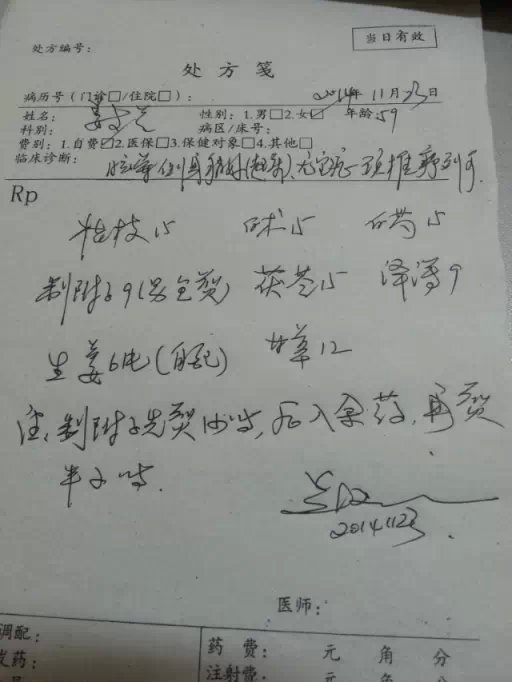 当日有效
处方编号：
处方笺
病历号（门诊□/住院□）： 2014年 11月23日
姓名： 性别：1.男□2.女☑ 年龄：59
科别： 病区/床号：
费别：1.自费☑2.医保□3.保健对象□4.其他□
临床诊断：
Rp
桂枝15 白术15 白芍15
制附子9(另包煎) 茯苓15 泽泻9
生姜6片(自配) 甘草12
注：制附子先煎1小时，后入余药，再煎
半小时.
20141123
医师：
调配： 药费： 元 角 分
发药： 注射费： 元 角 分